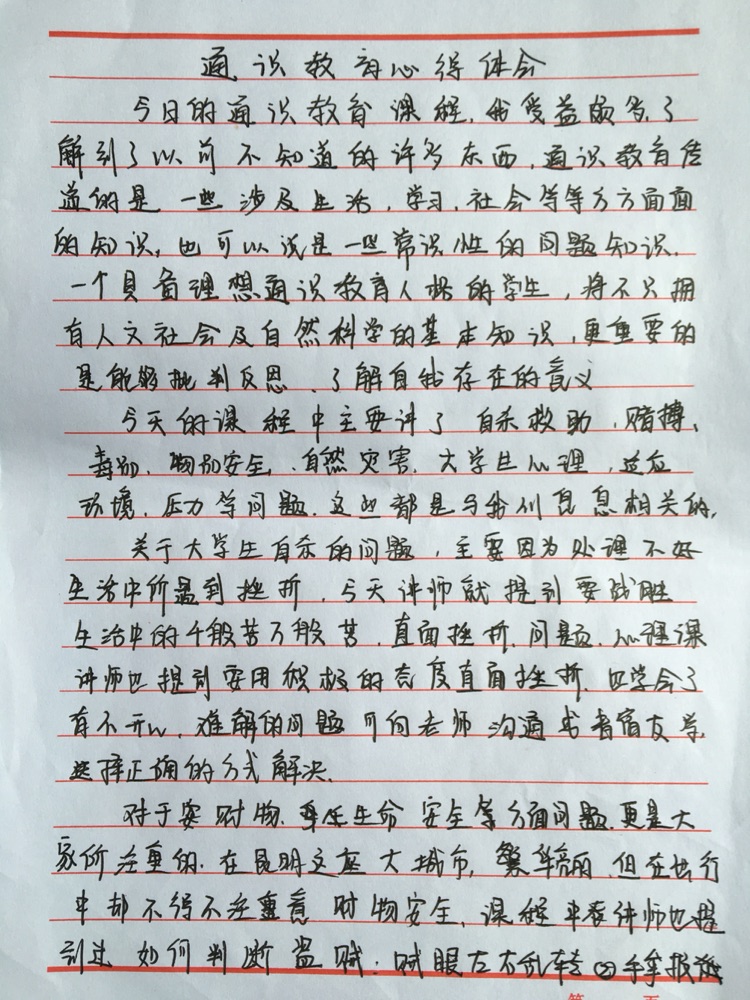 通识教育心得体会
今日的通识教育课程，我受益颇多，了
解到了以前不知道的许多东西，通识教育传
道的是一些涉及生活，学习，社会等等方方面面
的知识，也可以说是一些常识性的问题知识，
一个具备理想通识教育人格的学生，将不只拥
有人文社会及自然科学的基本知识，更重要的
是能够批判反思，了解自我存在的意义
今天的课程中主要讲了自杀救助，赌搏、
毒别，物别安全，自然灾害，大学生心理，适应
环境，压力等问题，这些都是与我们息息相关的，
关于大学生自杀的问题，主要因为处理不好
生活中所遇到挫折，今天讲师就提到要战胜
生活中的千般苦万般苦，直面挫折，问题，心理课
讲师也提到要用积极的态度直面挫折，也学会了
有不开心，难解的问题可向老师沟通或者宿友，
选择正确的方式解决。
对于财物，生命安全等方面问题，更是大
家所注重的，在昆明这座大城市，繁华亮丽，但在出行
中却不得不注意财物安全，课程中讲师也提
到过如何判断盗贼：贼眼左右乱转②手拿报纸
第 页